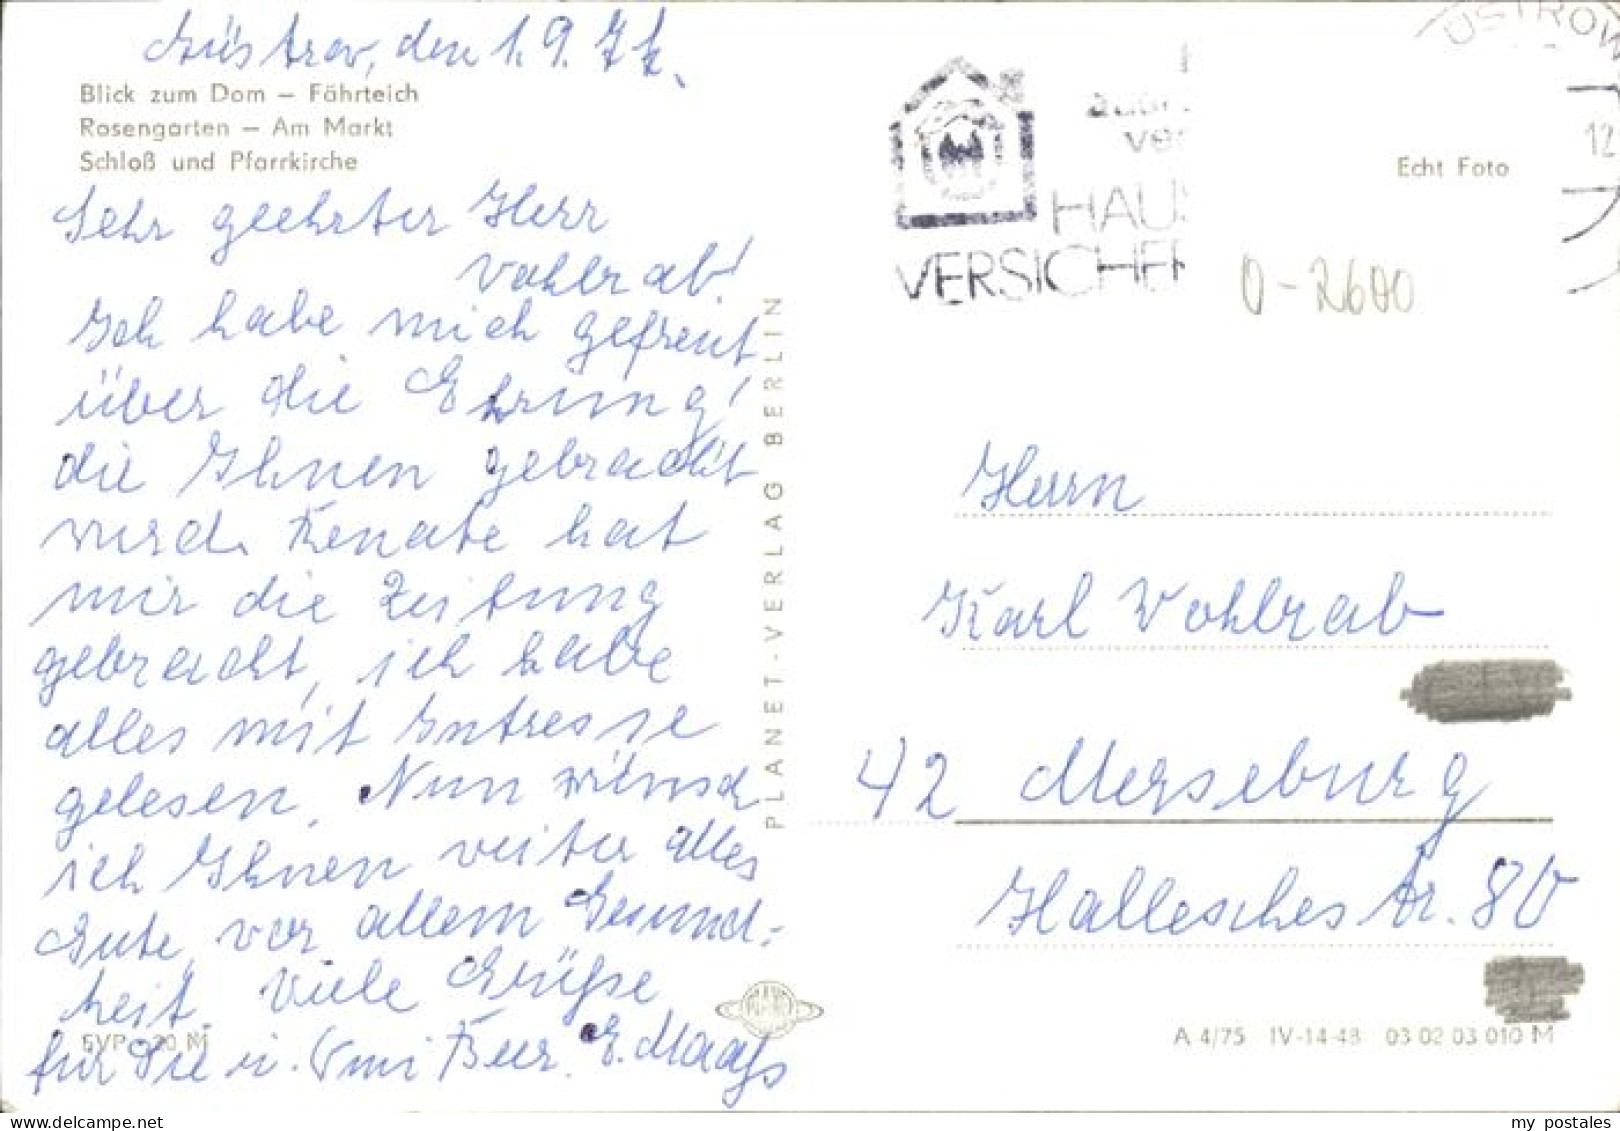 Güstrow, den 1.9.77.
Blick zum Dom – Fährteich
Rosengarten – Am Markt
Schloß und Pfarrkirche
Sehr geehrter Herr
Vohlrab!
Ich habe mich gefreut
über die Ehrung!
die Ihnen gebracht
wurd. Renate hat
mir die Zeitung
gebracht, ich habe
alles mit Intresse
gelesen. Nun wünsch
ich Ihnen weiter alles
Gute, vor allem Gesund-
heit. Viele Grüße
für Sie u. E. Maaß
EVP -20 M
PLANET-VERLAG BERLIN
ÜSTROW
12
HAUS
VERSICHER
Echt Foto
O-2600
Herrn
Karl Vohlrab
42 Merseburg
Hallesches Str. 80
A 4/75 IV-14-48 03 02 03 010 M
my postales